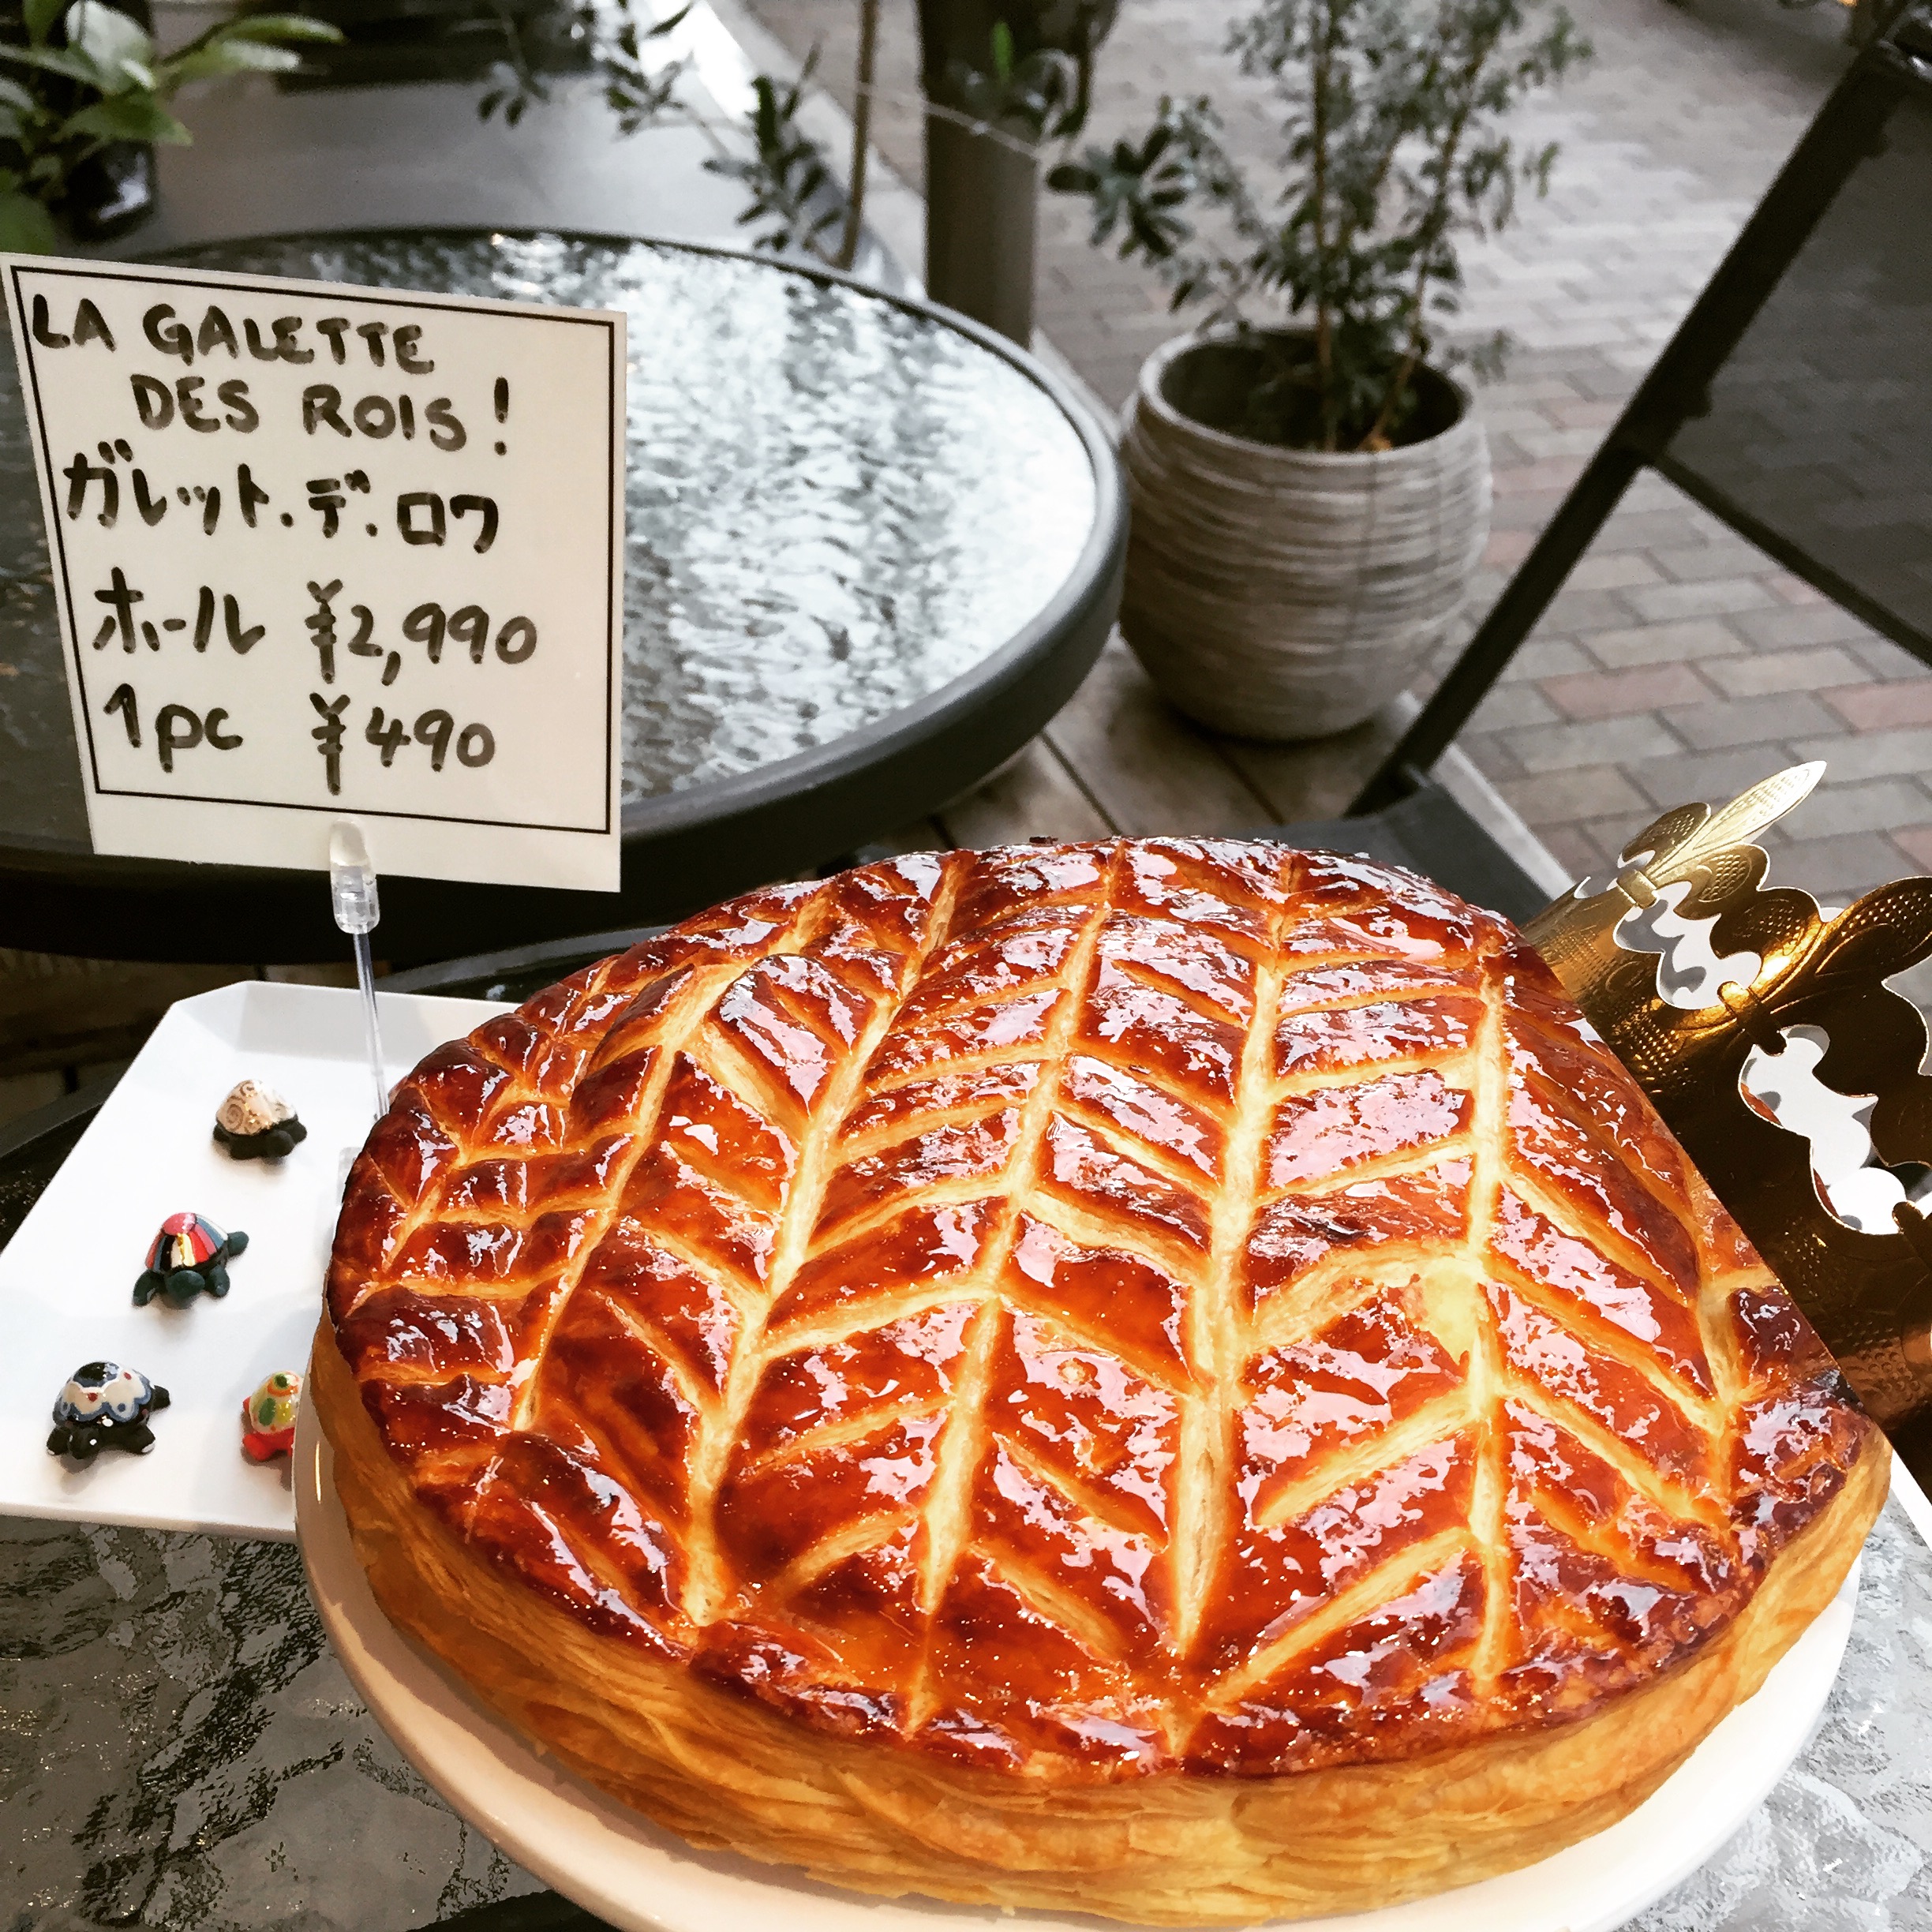 LA GALETTE
DES ROIS!
ガレット・デ・ロワ
ホール ¥2,990
1pc ¥490